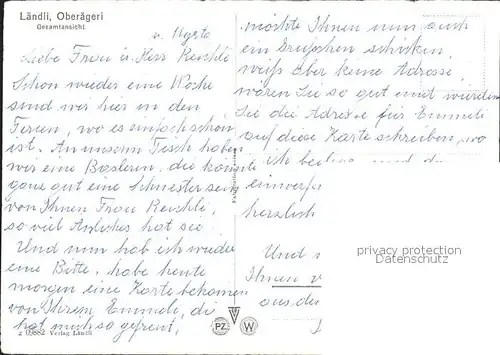 Ländli, Oberägeri
Gesamtansicht
Liebe Frau u. Herr
Schon wieder eine Woche
sind wir hier in den
Ferien, wo es einfach schön
ist. An unserm Tisch haben
wir eine Baslerin, die könnte
ganz gut eine Schwester sein
von Ihnen Frau
so viel Ähnliches hat sie.
Und nun hab ich wieder
eine Bitte, habe heute
morgen eine Karte bekommen
von Ihrem Emmeli, die
hat mich so gefreut,
Verlag Ländli
möchte Ihnen nun auch
ein Grüsschen schicken
weiß aber keine Adresse,
wären Sie so gut und würden
Sie die Adresse für Emmeli
auf diese Karte schreiben, wo
ich
einwerf
herzlich
Und
Ihnen v
aus der
privacy protection
Datenschutz
PZ
W